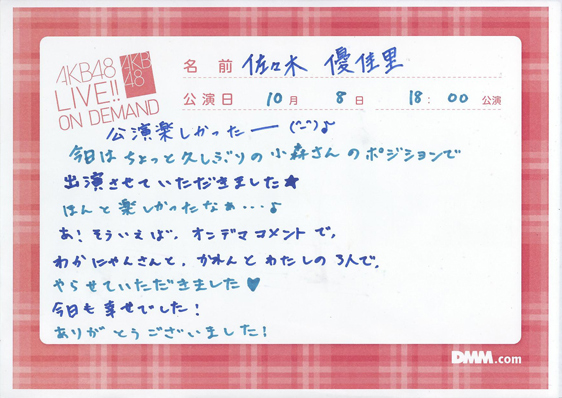 AKB48
LIVE!!
ON DEMAND
AKB
48
名 前 佐々木 優佳里
公演日 10月 8日 18:00 公演
公演楽しかったー (^-^)♪
今日は ちょっと久しぶりの 小森さん の ポジションで
出演させていただきました★
ほんと楽しかったなぁ・・・♪
あ! そういえば、オンデマコメントで、
わかにゃんさんと、かれんと わたしの 3人で、
やらせていただきました♥
今日も 幸せでした!
ありがとうございました!
DMM.com